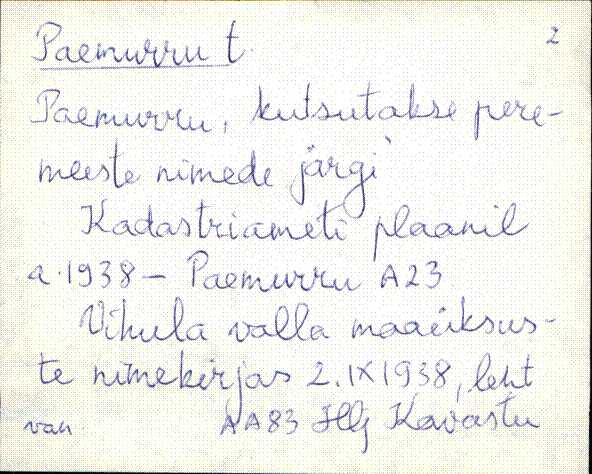 Paemurru t. 2
Paemurru, kutsutakse pere-
meeste nimede järgi
Kadastriameti plaanil
a. 1938 – Paemurru A23
Vihula valla maaüksus-
te nimekirjas 2.IX 1938, leht
van AA83 Hlj Kavastu